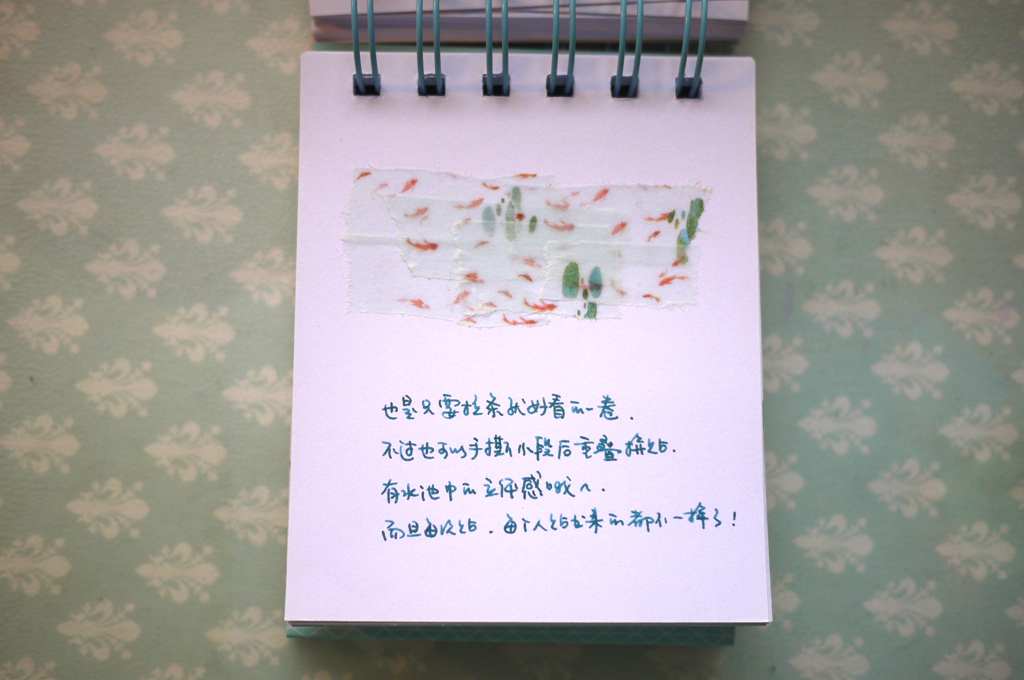 也是只要拉条就好看的一卷.
不过也可以手撕小段后重叠拼贴.
有水池中的立体感哦~.
而且每次贴.每个人贴出来的都不一样了!